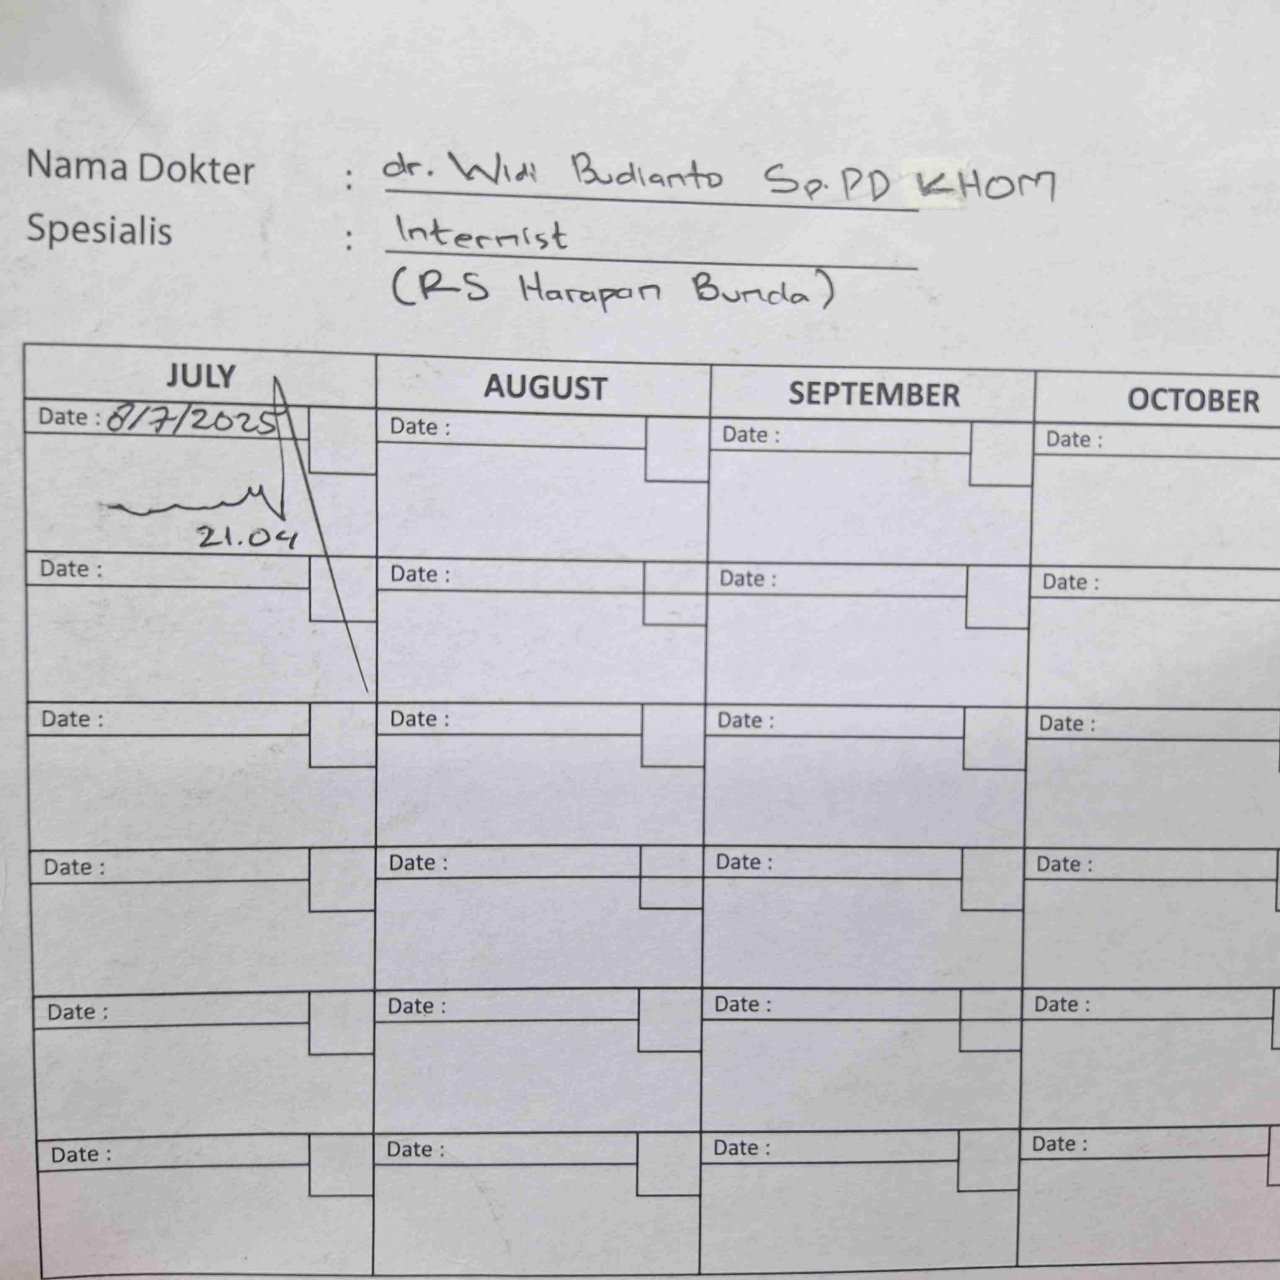 Nama Dokter : dr. Widi Budianto Sp.PD KHOM
Spesialis : Internist
(RS Harapan Bunda)
JULY AUGUST SEPTEMBER OCTOBER
Date : 8/7/2025 Date : Date : Date :
21.04
Date : Date : Date : Date :
Date : Date : Date : Date :
Date : Date : Date : Date :
Date : Date : Date : Date :
Date : Date : Date : Date :